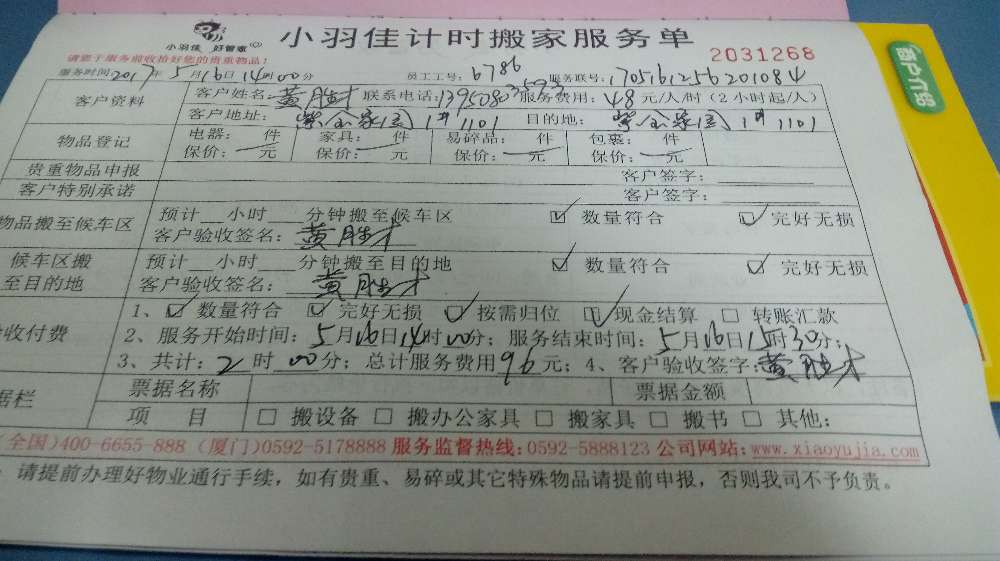 小羽佳 好管家
小羽佳计时搬家服务单
请您于服务前收拾好您的贵重物品!
2031268
服务时间2017年5月16日14时00分 员工工号:6786 服务联号:1705161256201084
客户资料 客户姓名:黄胜才 联系电话: 服务费用:48元/人/时(2小时起/人)
客户地址:紫金家园1# 1101 目的地:紫金家园1# 1101
物品登记 电器: 件 家具: 件 易碎品: 件 包裹: 件
保价:一元 保价:一元 保价:一元 保价:一元
贵重物品申报 客户签字:
客户特别承诺 客户签字:
物品搬至候车区 预计__小时___分钟搬至候车区 ☑数量符合 ☑完好无损
客户验收签名:黄胜才
候车区搬至目的地 预计__小时___分钟搬至目的地 ☑数量符合 ☑完好无损
客户验收签名:黄胜才
收付费 1、☑数量符合 ☑完好无损 ☑按需归位 ☑现金结算 □转账汇款
2、服务开始时间:5月16日14时00分;服务结束时间:5月16日15时30分;
3、共计:2时00分;总计服务费用96元;4、客户验收签字:黄胜才
据栏 票据名称 票据金额
项 目 □搬设备 □搬办公家具 □搬家具 □搬书 □其他:
(全国)400-6655-888 (厦门)0592-5178888 服务监督热线:0592-5888123 公司网站:www.xiaoyujia.com
请提前办理好物业通行手续,如有贵重、易碎或其它特殊物品请提前申报,否则我司不予负责。
客户介绍